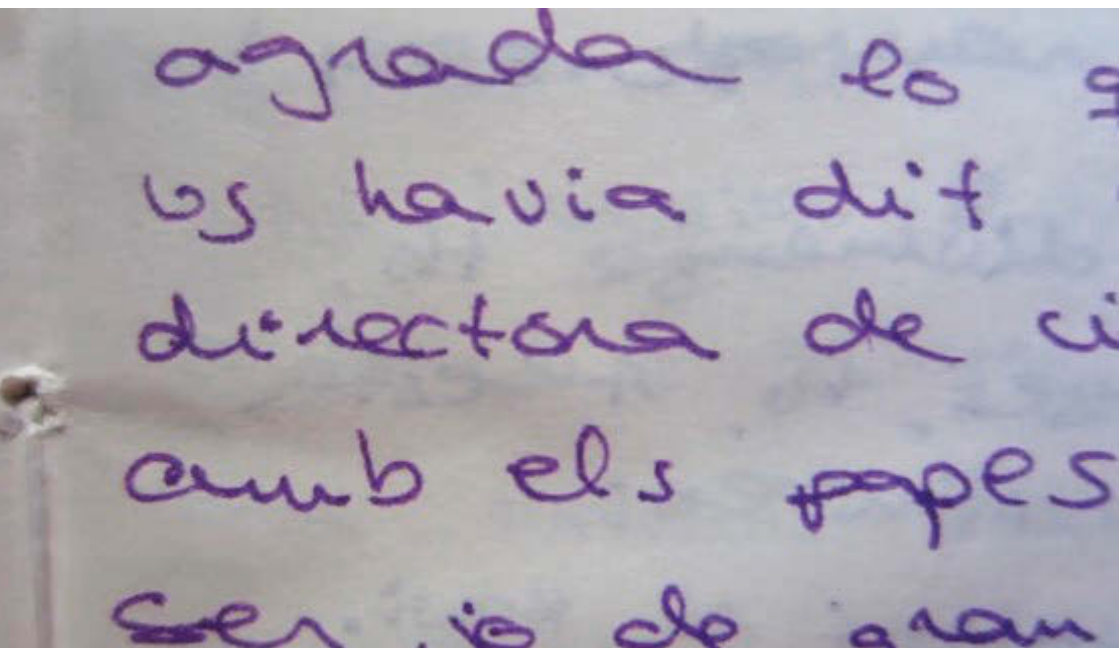 agrada lo q
us havia dit
directora de ci
amb els papes
ser jo de gran